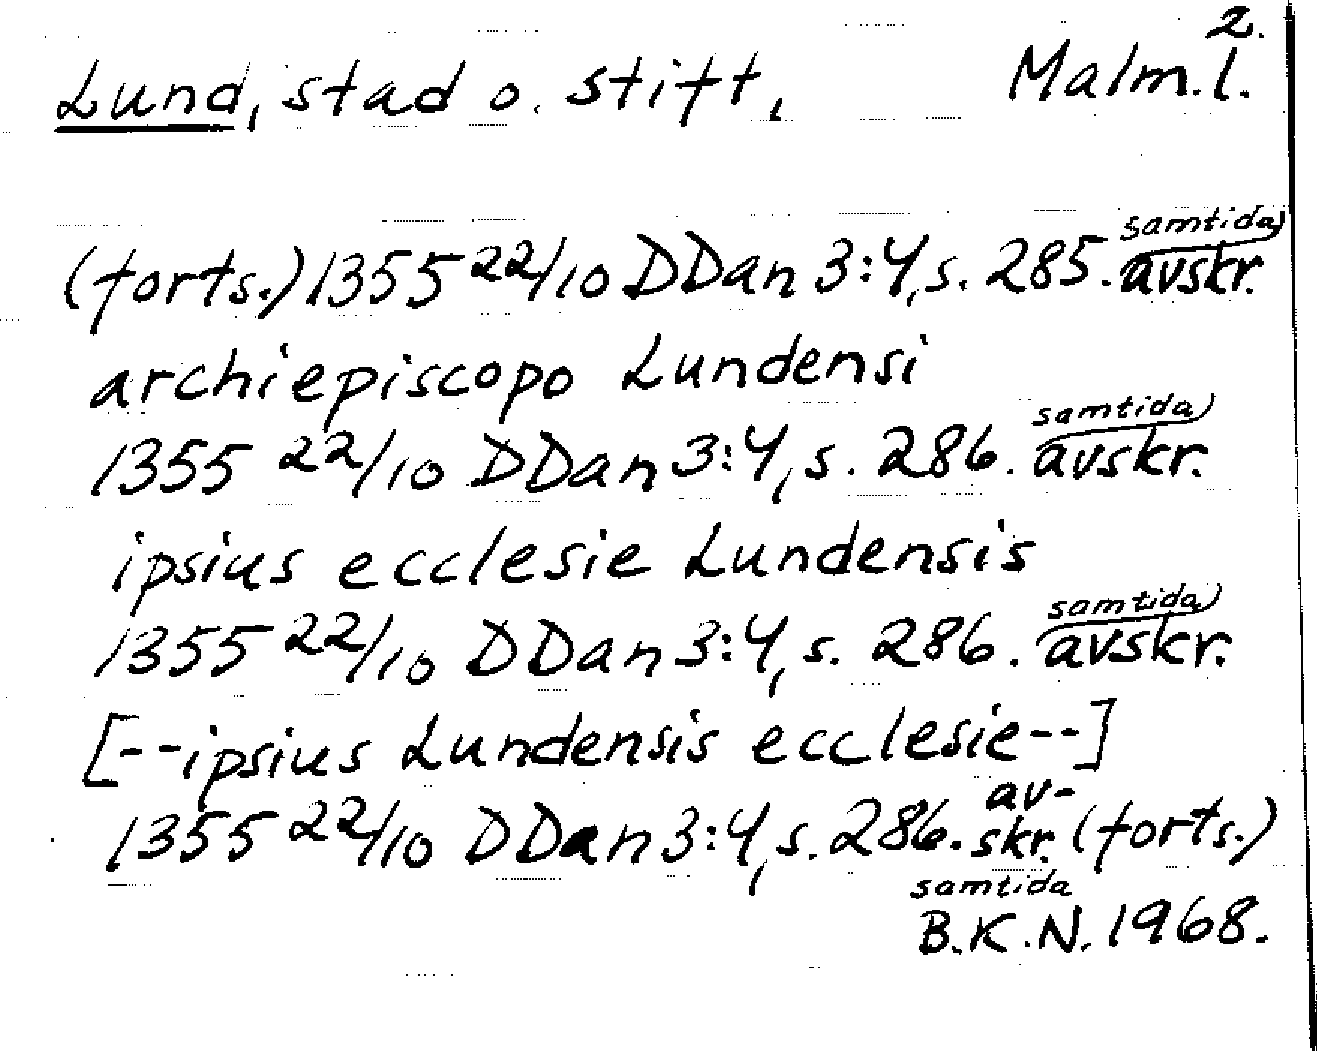 2.
Lund, stad o. stift, Malm.l.
samtida
(forts.) 1355 22/10 DDan 3:4, s. 285. avskr.
archiepiscopo Lundensi
samtida
1355 22/10 DDan 3:4, s. 286. avskr.
ipsius ecclesie Lundensis
samtida
1355 22/10 DDan 3:4, s. 286. avskr.
[--ipsius Lundensis ecclesie--]
av-
1355 22/10 DDan 3:4, s. 286. skr. (forts.)
samtida
B.K.N. 1968.